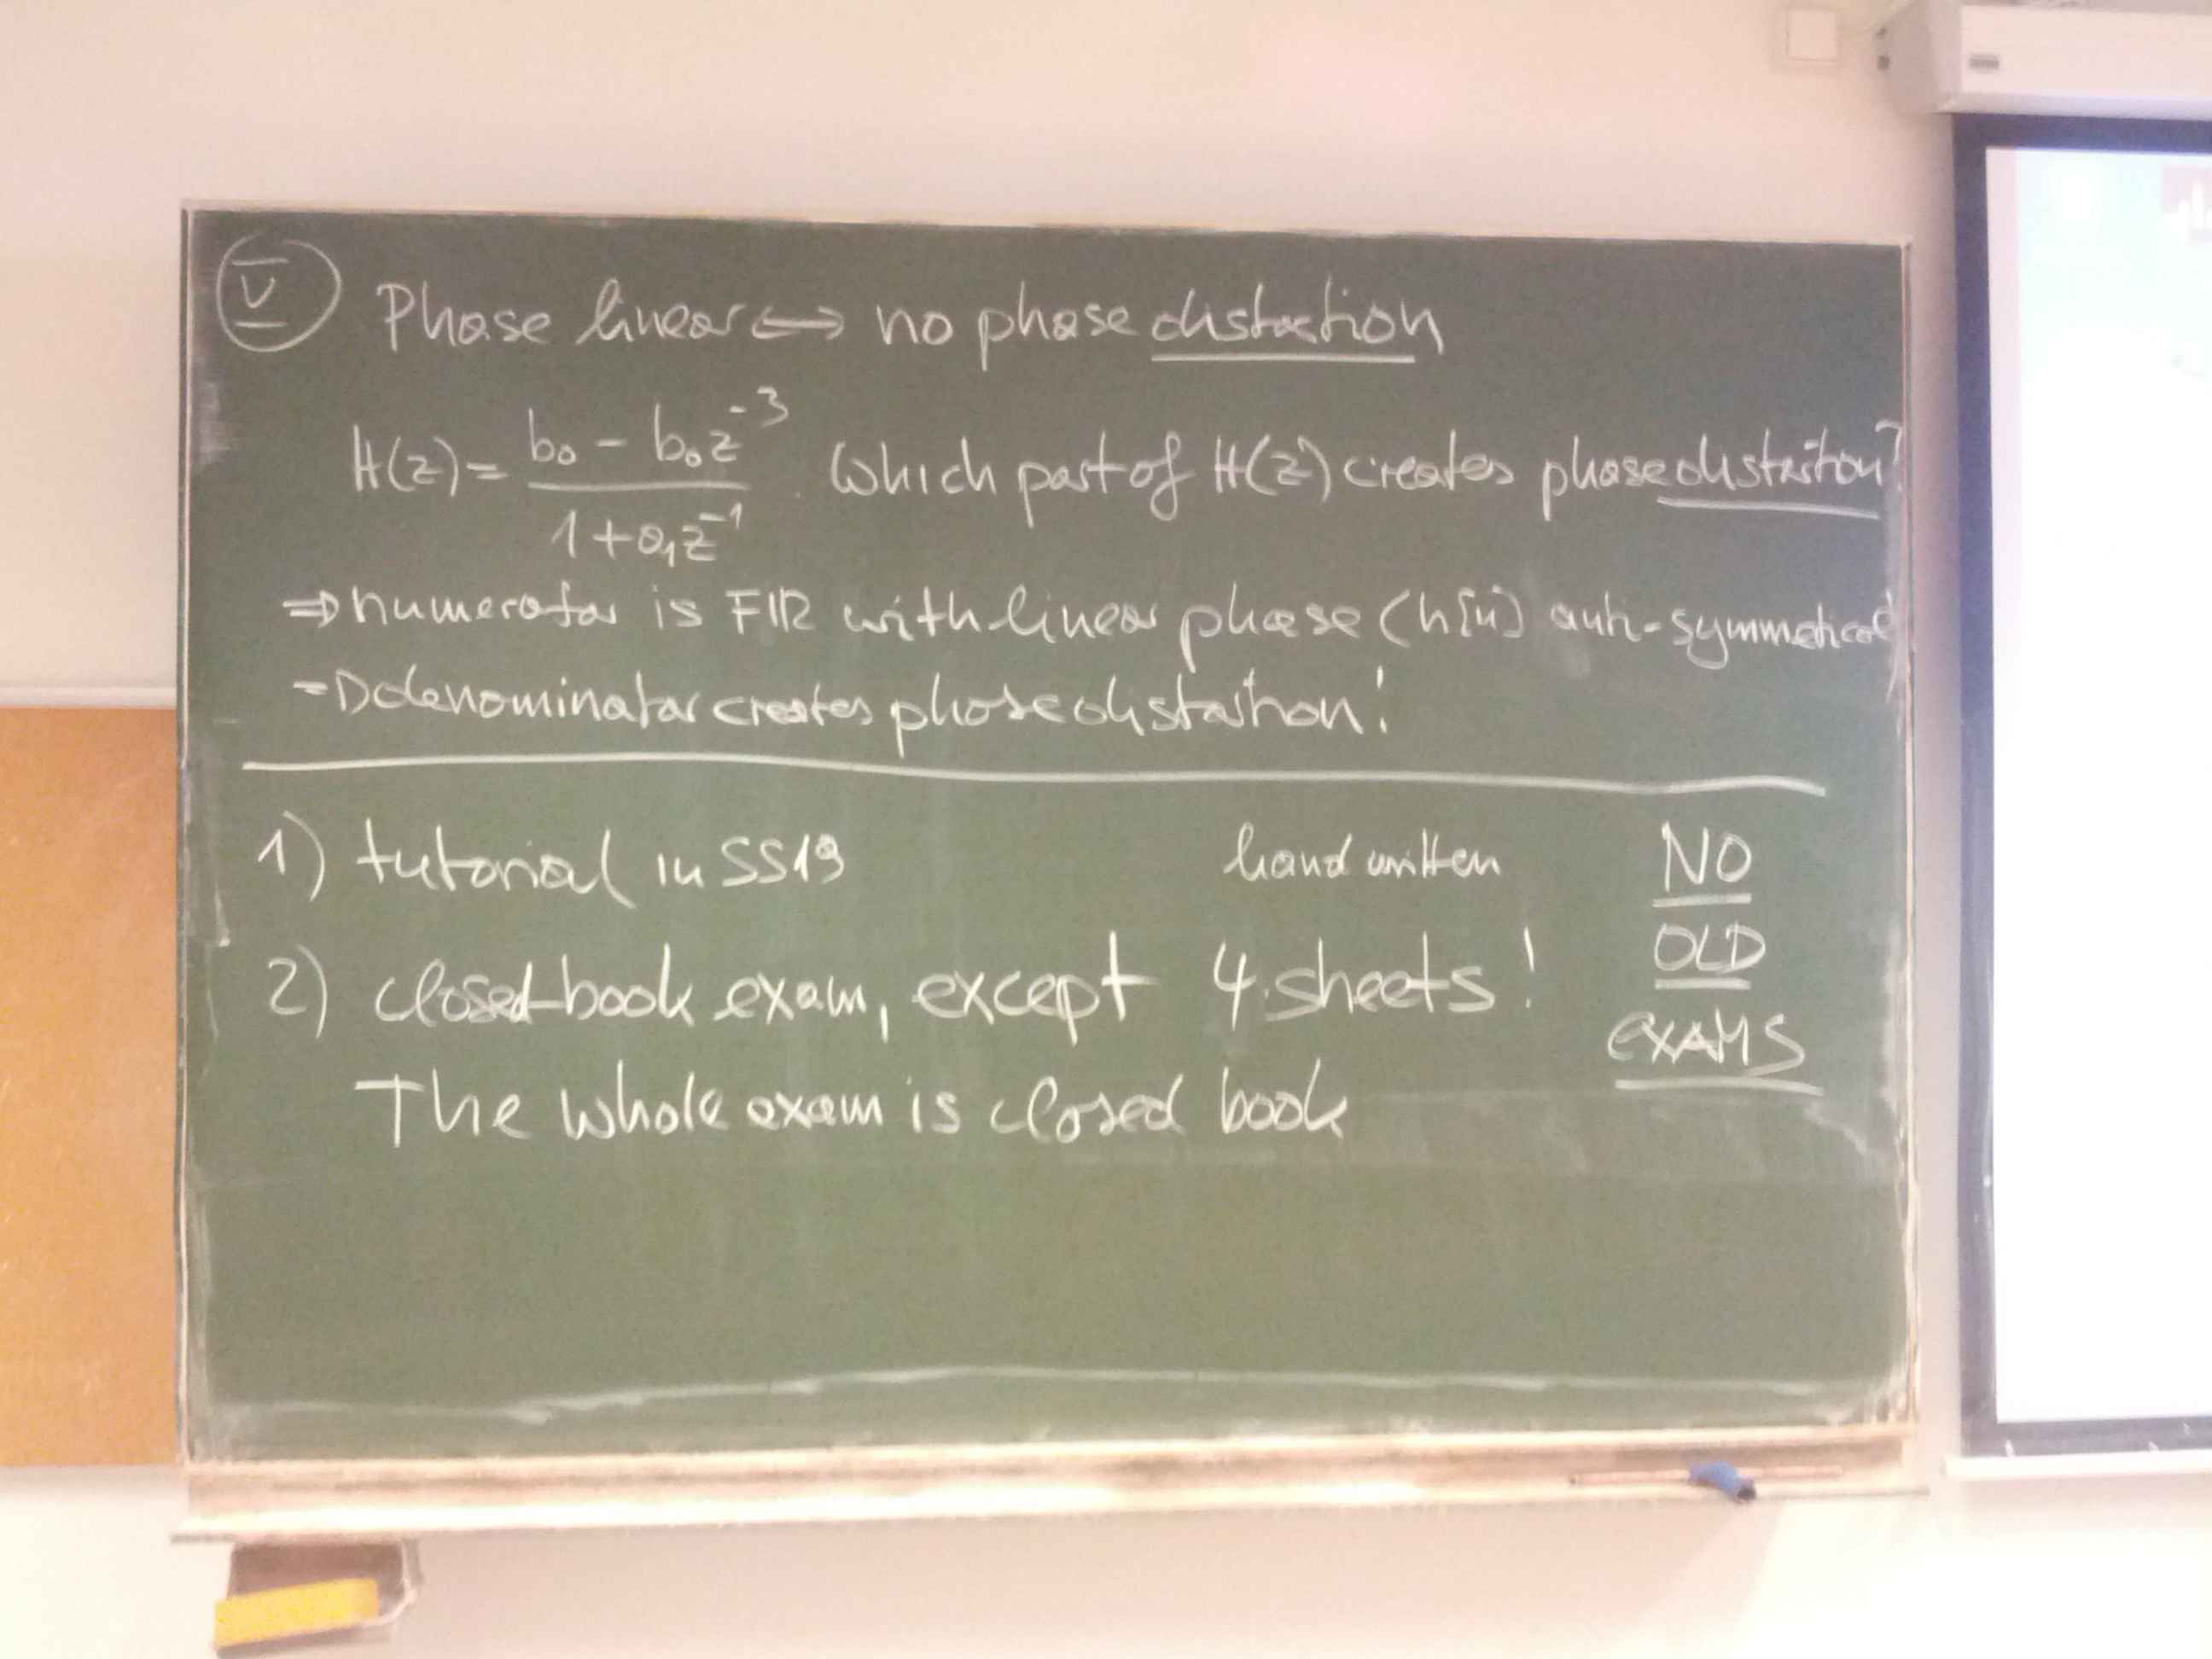 V
Phase linear ⟷ no phase distortion
H(z) = (b₀ - b₀z⁻³) / (1 + a₁z⁻¹) . Which part of H(z) creates phase distortion?
⇒ numerator is FIR with linear phase (h[n] anti-symmetrical
⇒ denominator creates phase distortion!
1) tutorial in SS19
hand written
2) closed-book exam, except 4 sheets!
The whole exam is closed book
NO
OLD
EXAMS